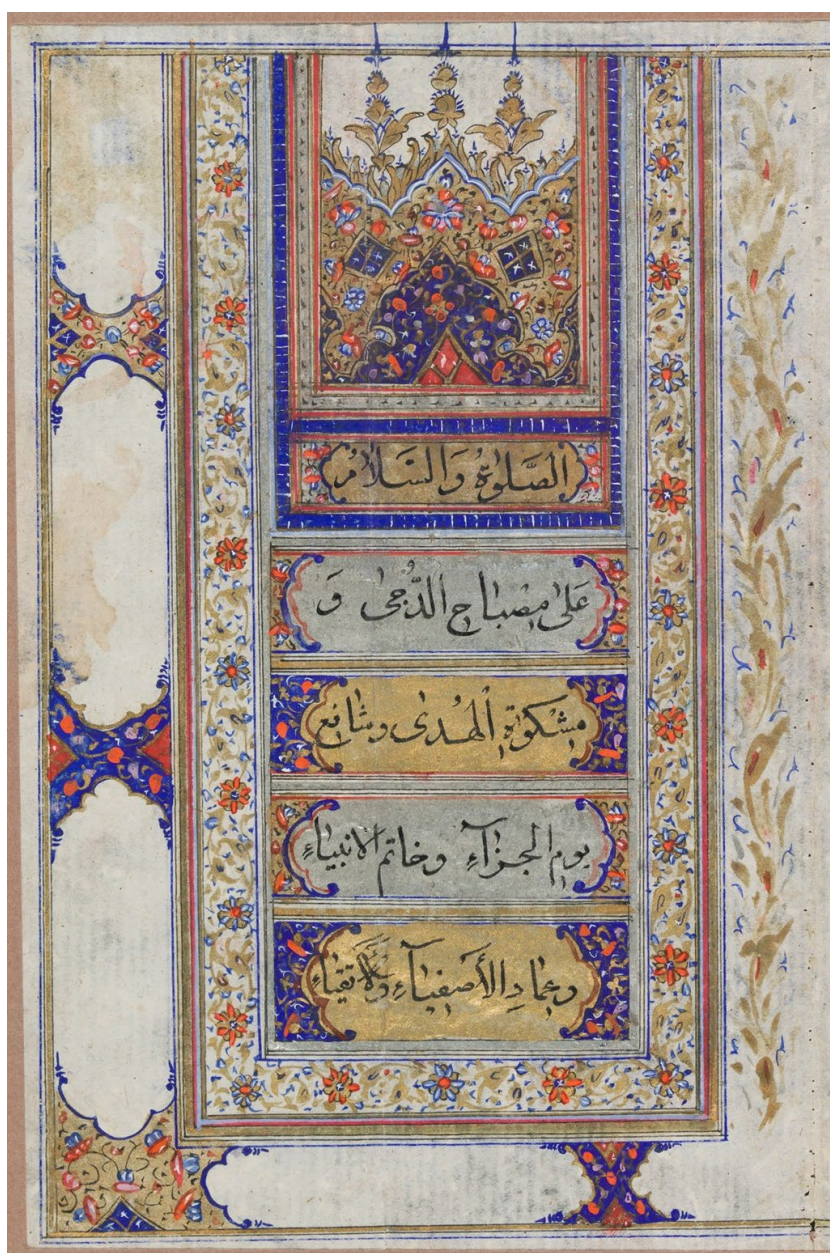 الصَّلوةُ وَالسَّلامُ
عَلى مِصْباحِ الدُّجى وَ
مِشْكوةِ الْهُدى وشافِعِ
يومِ الجزآءِ وخاتم الانبياءِ
وعِمادِ الأصفيآءِ والاتقياءِ